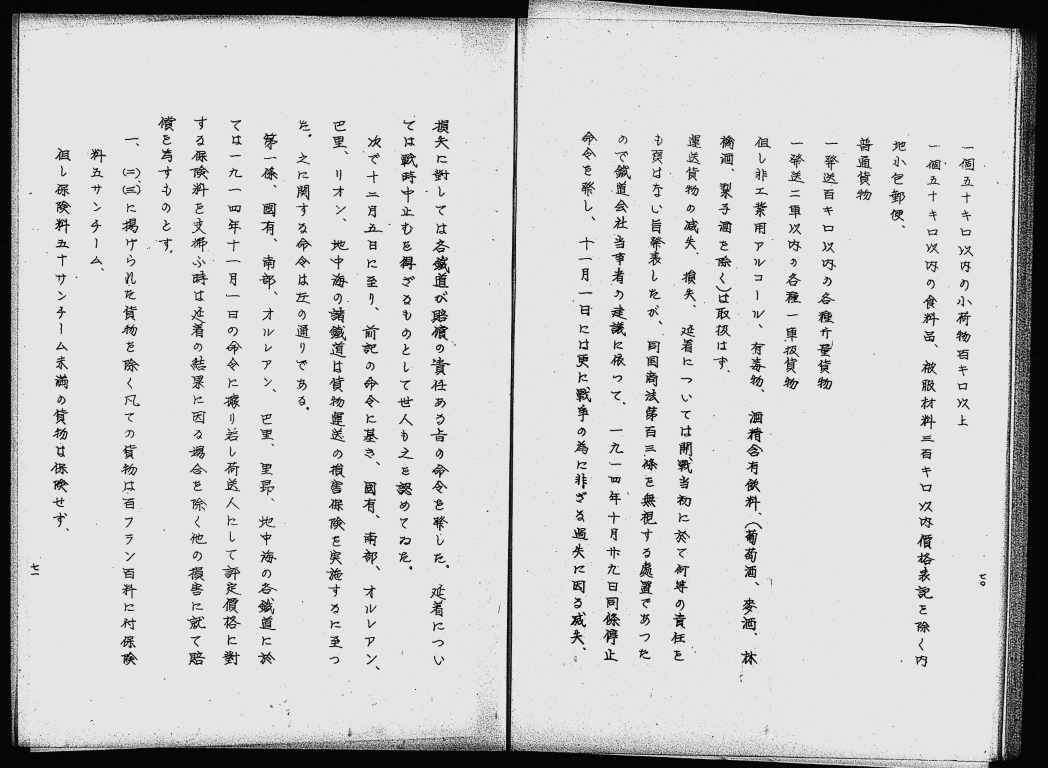 一個五十キロ以内の小荷物百キロ以上
一個五十キロ以内の食料品、被服材料三百キロ以内價格表記を除く内
地小包郵便、
普通貨物
一発送百キロ以内の各種斤量貨物
一発送二車以内の各種一車扱貨物
但し非工業用アルコール、有毒物、酒精含有飲料、(葡萄酒、麥酒、林
檎酒、梨子酒を除く)は取扱はず、
運送貨物の滅失、損失、延着については開戰当初に於て何等の責任を
も負はない旨発表したが、同国商法第百三條を無視する處置であつた
ので鐵道会社当事者の建議に依つて、一九一四年十月廿九日同條停止
命令を発し、十一月一日には更に戰争の為に非ざる過失に因る滅失、
七〇
損失に對しては各鐵道が賠償の責任ある旨の命令を発した。延着につい
ては戰時中止むを得ざるものとして世人も之を認めてゐた。
次で十二月五日に至り、前記の命令に基き、國有、南部、オルレアン、
巴里、リオン、地中海の諸鐵道は貨物運送の損害保険を実施するに至つ
た。之に関する命令は左の通りである。
第一條、國有、南部、オルレアン、巴里、里昂、地中海の各鐵道に於
ては一九一四年十一月一日の命令に據り若し荷送人にして評定價格に對
する保険料を支拂ふ時は延着の結果に因る場合を除く他の損害に就て賠
償を為すものとす。
一、(二)(三)に掲げられた貨物を除く凡ての貨物は百フラン百料に付保険
料五サンチーム、
但し保険料五十サンチーム未満の貨物は保険せず、
七一